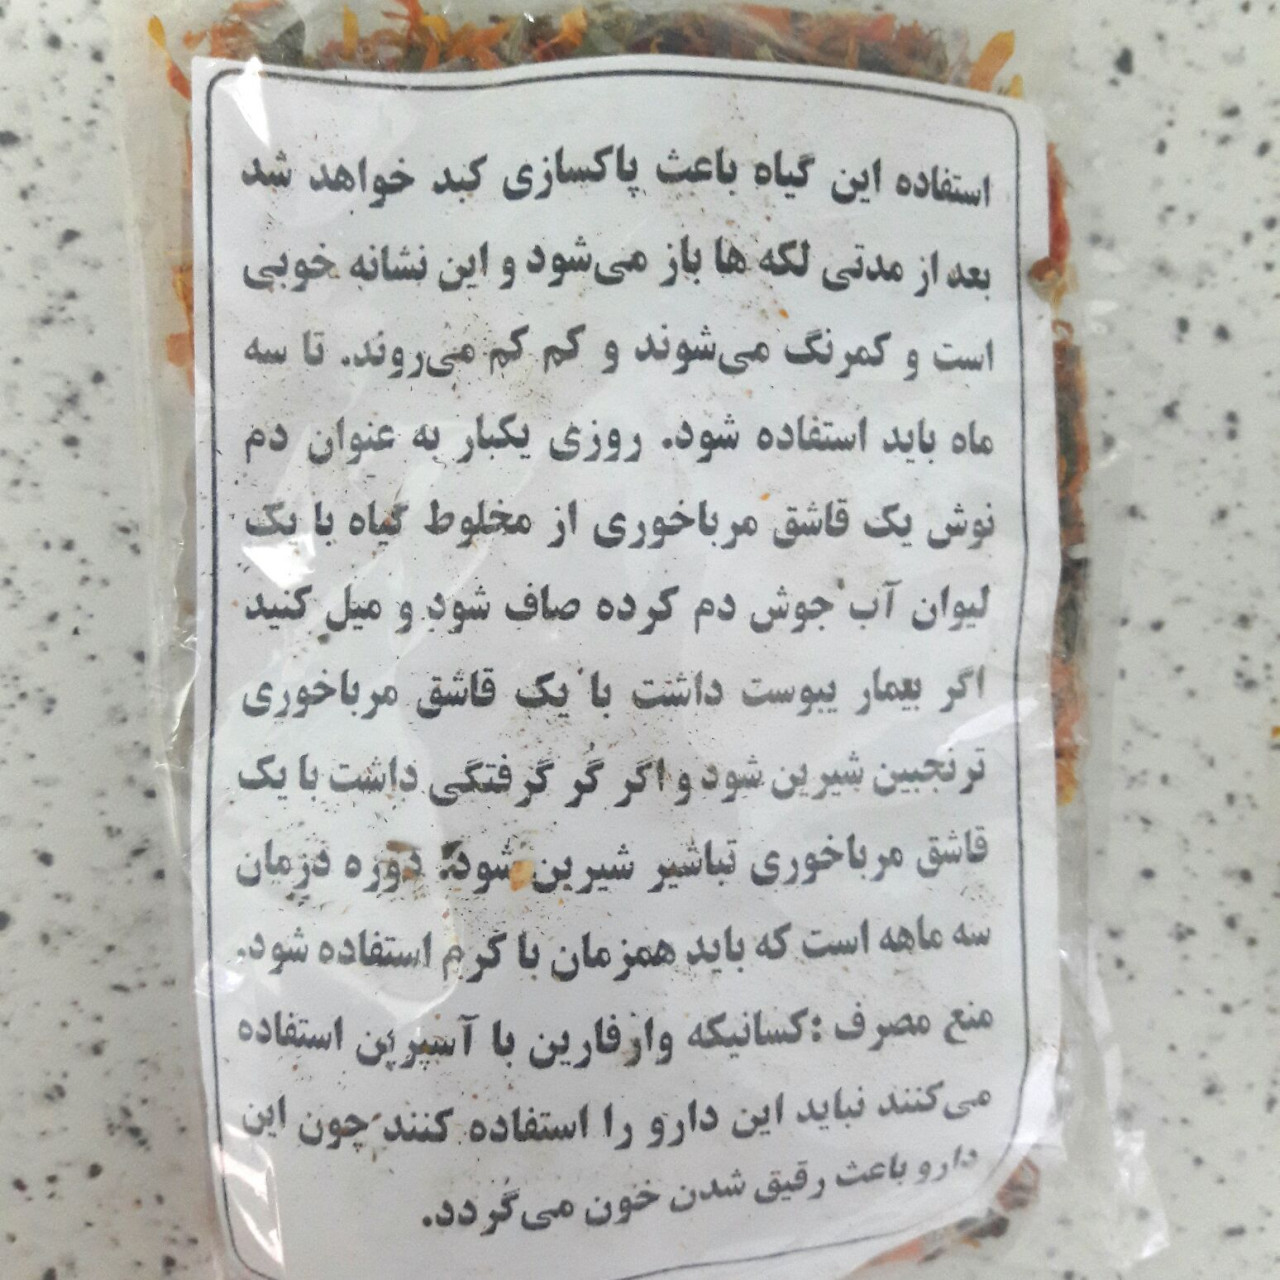 استفاده این گیاه باعث پاکسازی کبد خواهد شد
بعد از مدتی لکه ها باز می‌شود و این نشانه خوبی
است و کمرنگ می‌شوند و کم کم می‌روند. تا سه
ماه باید استفاده شود. روزی یکبار به عنوان دم
نوش یک قاشق مرباخوری از مخلوط گیاه با یک
لیوان آب جوش دم کرده صاف شود و میل کنید
اگر بیمار یبوست داشت با یک قاشق مرباخوری
ترنجبین شیرین شود و اگر گر گرفتگی داشت با یک
قاشق مرباخوری تباشیر شیرین شود. دوره درمان
سه ماهه است که باید همزمان با کرم استفاده شود.
منع مصرف : کسانیکه وارفارین با آسپرین استفاده
می‌کنند نباید این دارو را استفاده کنند چون این
دارو باعث رقیق شدن خون می‌گردد.